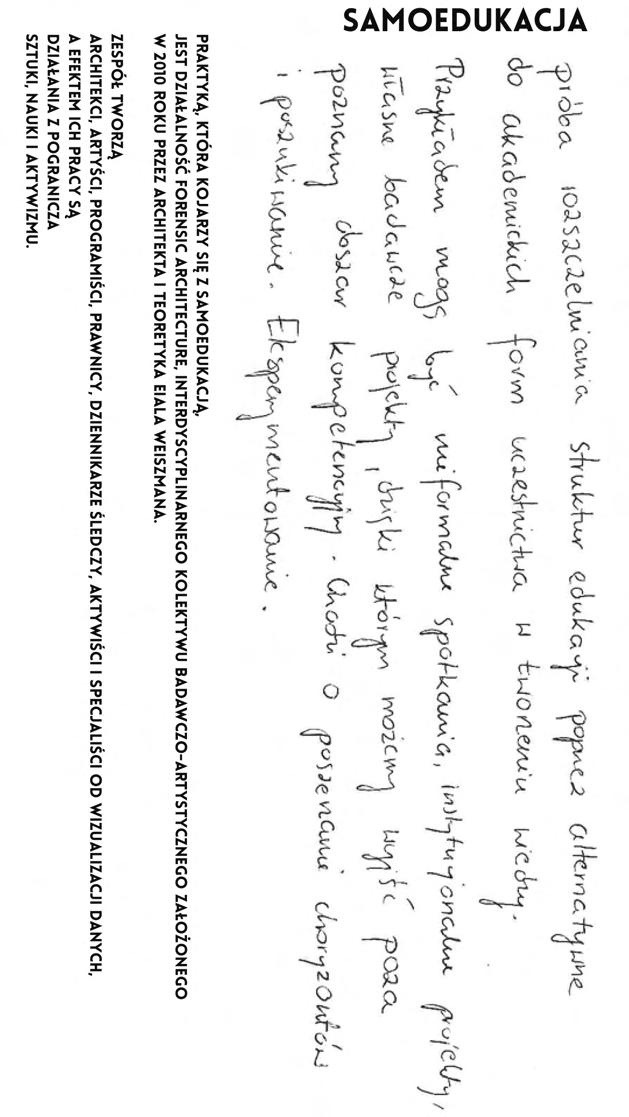 SAMOEDUKACJA
próba rozszczelniania struktur edukacji poprzez alternatywne
do akademickich form uczestnictwa w tworzeniu wiedzy.
Przykładem mogą być nieformalne spotkania, instytucjonalne projekty,
własne badawcze projekty, dzięki którym możemy wyjść poza
poznany obszar kompetencyjny. Chodzi o poszerzanie choryzontów
i poszukiwanie. Eksperymentowanie.
PRAKTYKĄ, KTÓRA KOJARZY SIĘ Z SAMOEDUKACJĄ,
JEST DZIAŁALNOŚĆ FORENSIC ARCHITECTURE, INTERDYSCYPLINARNEGO KOLEKTYWU BADAWCZO-ARTYSTYCZNEGO ZAŁOŻONEGO
W 2010 ROKU PRZEZ ARCHITEKTA I TEORETYKA EIALA WEISZMANA.
ZESPÓŁ TWORZĄ
ARCHITEKCI, ARTYŚCI, PROGRAMIŚCI, PRAWNICY, DZIENNIKARZE ŚLEDCZY, AKTYWIŚCI I SPECJALIŚCI OD WIZUALIZACJI DANYCH,
A EFEKTEM ICH PRACY SĄ
DZIAŁANIA Z POGRANICZA
SZTUKI, NAUKI I AKTYWIZMU.